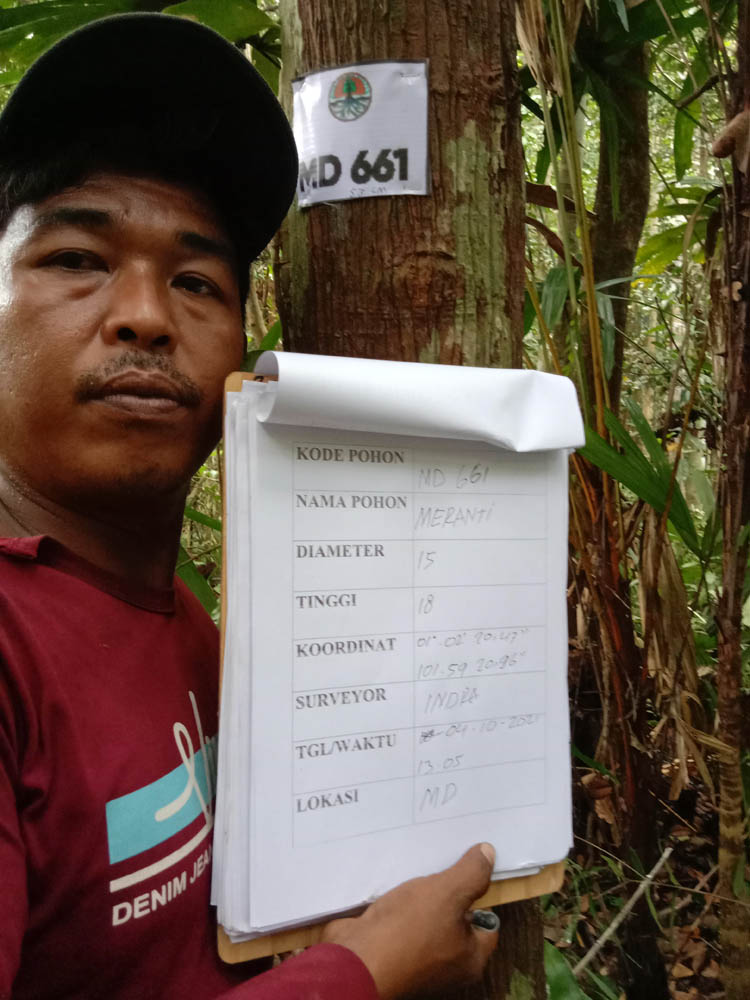 MD 661
KODE POHON MD 661
NAMA POHON MERANTI
DIAMETER 15
TINGGI 18
KOORDINAT 01°.02' 20.47"
101.59 20.96"
SURVEYOR INDRA
TGL/WAKTU 04.10.2021
13.05
LOKASI MD
DENIM JEAN